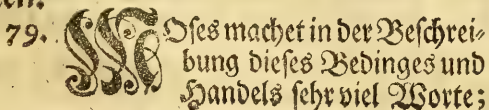 79. MOſes machet in der Beſchrei-
bung dieſes Bedinges und
Handels ſehr viel Worte;